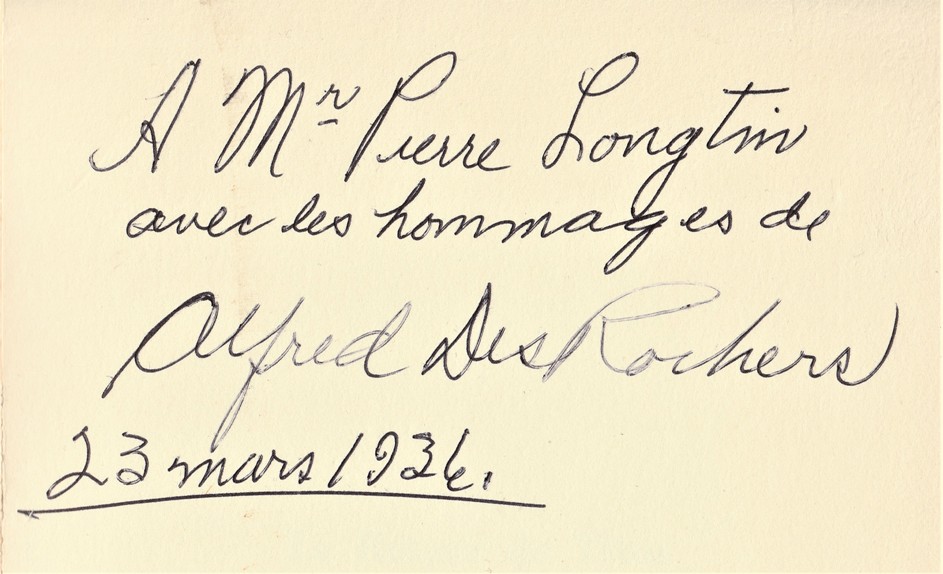 A Mr Pierre Longtin
avec les hommages de
Alfred DesRochers
23 mars 1936.